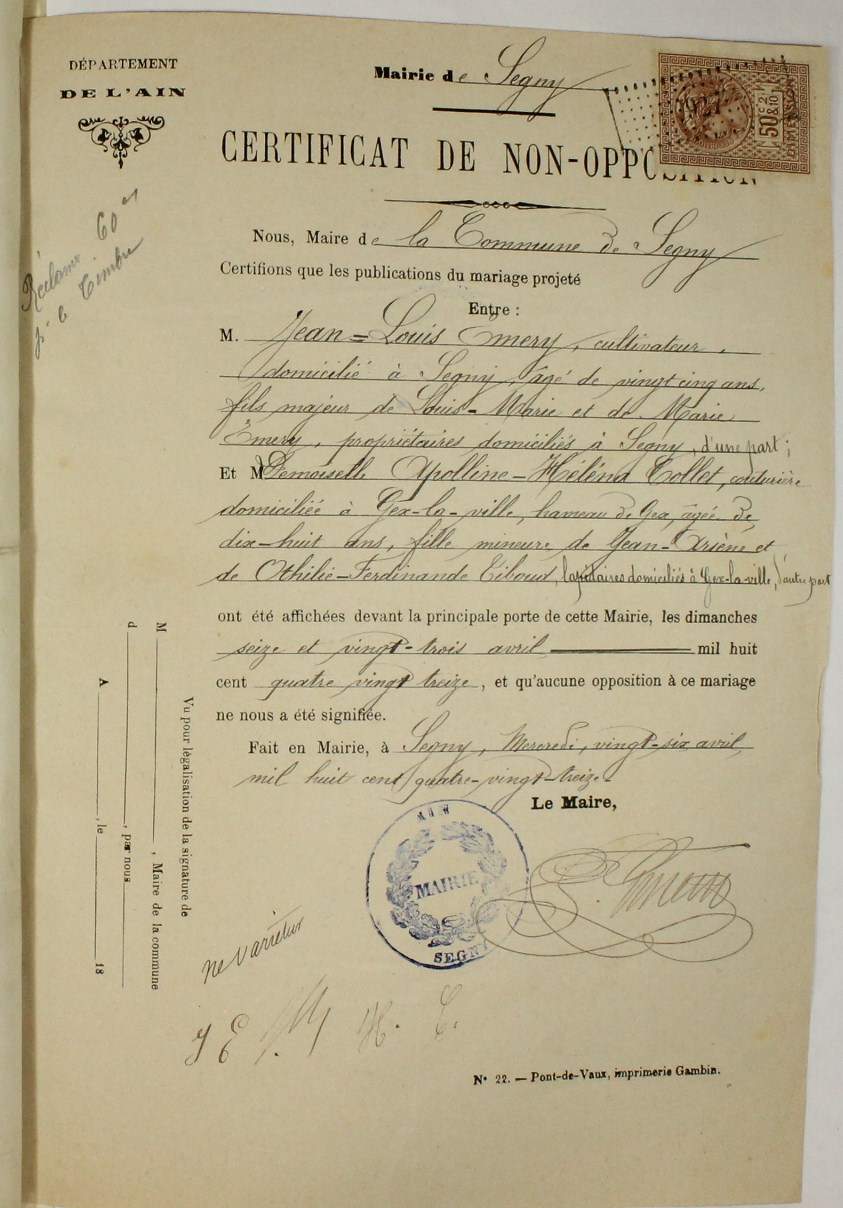 DÉPARTEMENT
DE L'AIN
Mairie de Segny
50 c
2 & 10
DIMENSION
CERTIFICAT DE NON-OPPOSITION
Réclamé 60 c
pr le Timbre
Nous, Maire de la Commune de Segny
Certifions que les publications du mariage projeté
Entre :
M. Jean=Louis Emery, cultivateur,
domicilié à Segny, âgé de vingt cinq ans,
fils majeur de Louis-Marie et de Marie
Emery, propriétaires domiciliés à Segny, d'une part;
Et M Demoiselle Apolline-Héléna Collet, couturière
domiciliée à Gex-la-ville, hameau de Gex, âgée de
dix-huit ans, fille mineure de Jean-Arsène et
de Othilie-Ferdinande Tiboud, lapidaires domiciliés à Gex-la-ville, d'autre part
ont été affichées devant la principale porte de cette Mairie, les dimanches
seize et vingt-trois avril mil huit
cent quatre vingt treize, et qu'aucune opposition à ce mariage
ne nous a été signifiée.
Fait en Mairie, à Segny, Mercredi, vingt-six avril
mil huit cent quatre-vingt-treize.
Le Maire,
MAIRIE
SEGNY
Vu pour légalisation de la signature de
M , Maire de la commune
d , par nous
A , le 18
ne varietur
J E. H. C.
N° 22. — Pont-de-Vaux, imprimerie Gambin.